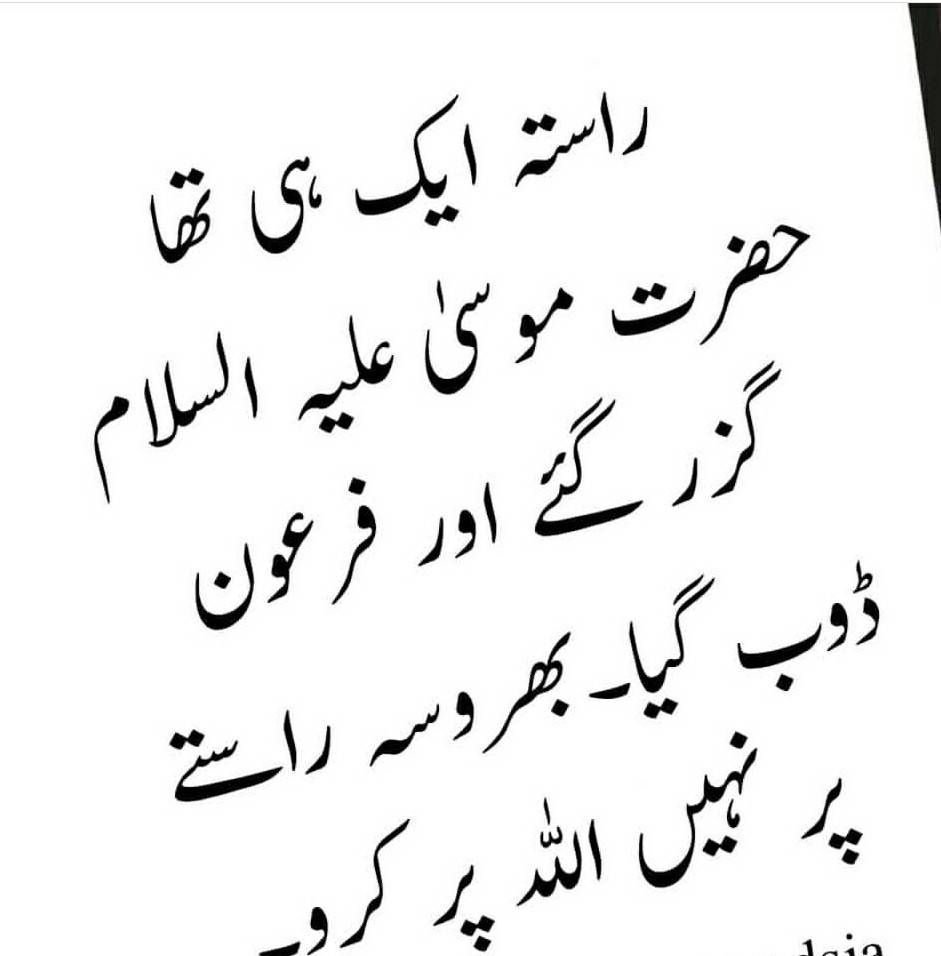 راستہ ایک ہی تھا
حضرت موسیٰ علیہ السلام
گزر گئے اور فرعون
ڈوب گیا۔ بھروسہ راستے
پر نہیں اللہ پر کرو۔